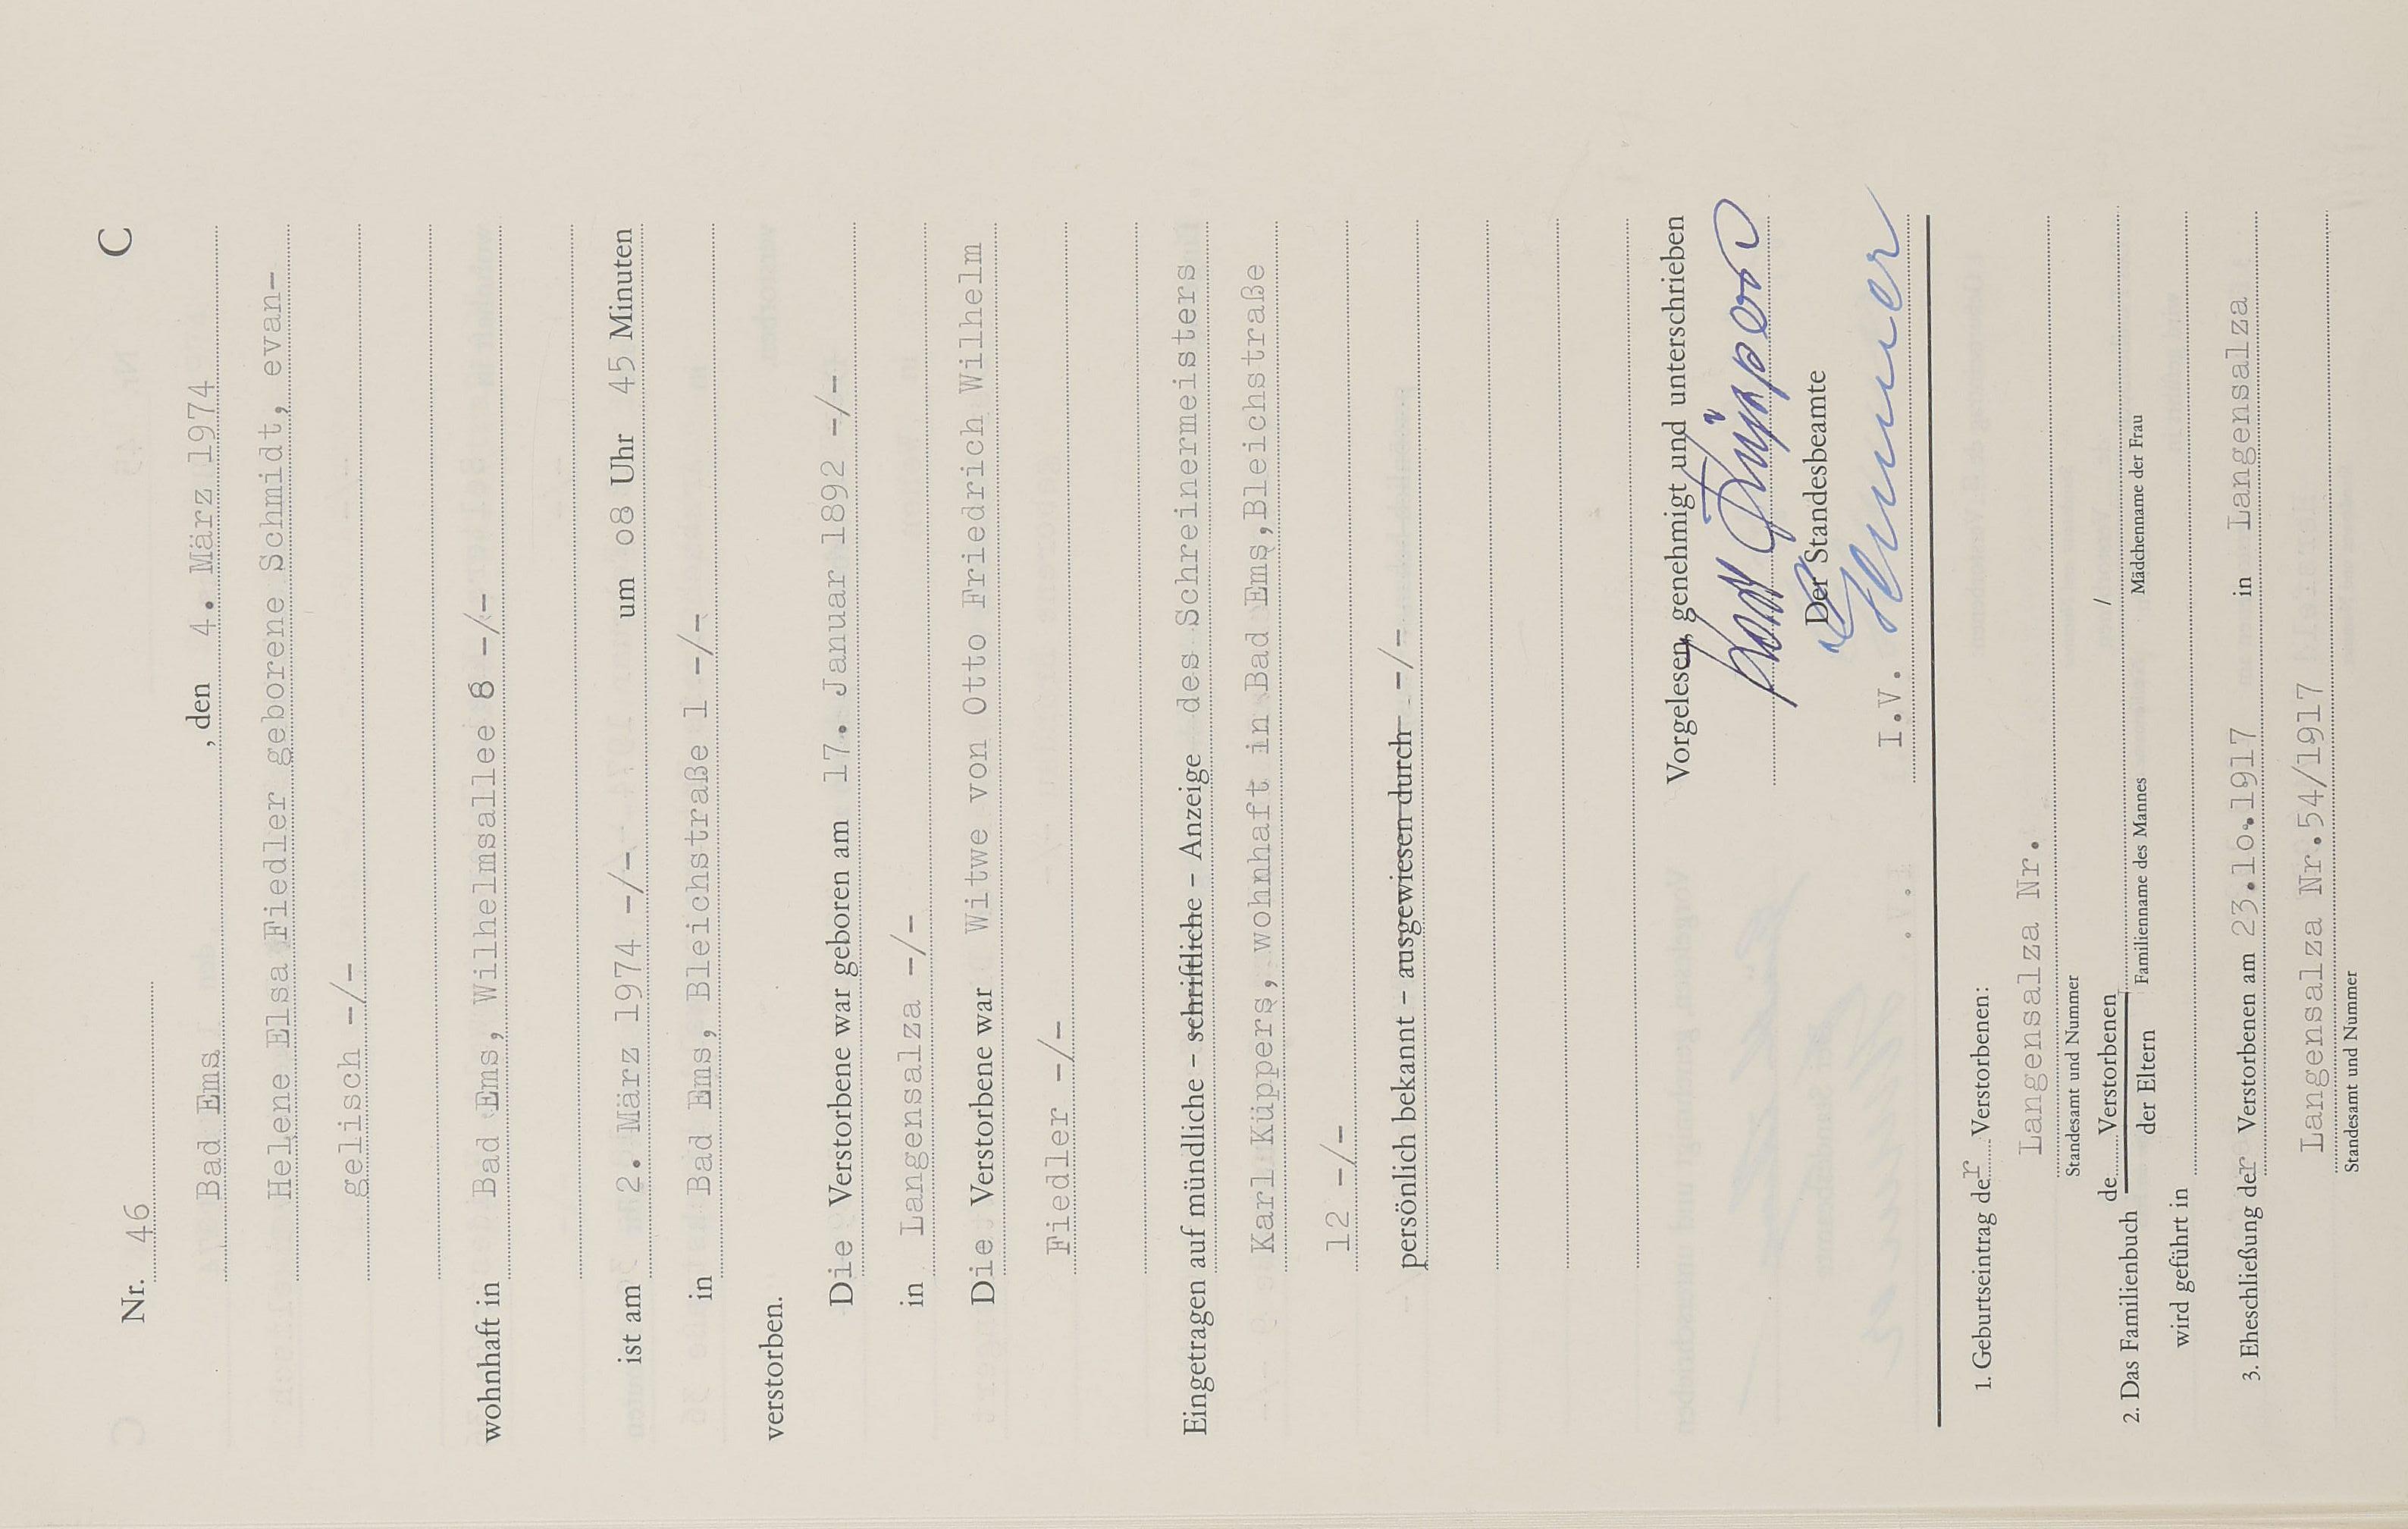 C
Nr. 46
Bad Ems, den 4. März 1974
Helene Elsa Fiedler geborene Schmidt, evan-
gelisch -/-
wohnhaft in Bad Ems, Wilhelmsallee 8 -/-
ist am 2. März 1974 -/- um o8 Uhr 45 Minuten
in Bad Ems, Bleichstraße 1 -/-
verstorben.
Die Verstorbene war geboren am 17. Januar 1892 -/-
in Langensalza -/-
Die Verstorbene war Witwe von Otto Friedrich Wilhelm
Fiedler -/-
Eingetragen auf mündliche – schriftliche – Anzeige des Schreinermeisters
Karl Küppers, wohnhaft in Bad Ems,Bleichstraße
12 -/-
persönlich bekannt – ausgewiesen durch -/-
Vorgelesen, genehmigt und unterschrieben
Karl Küppers
Der Standesbeamte
I.V.
1. Geburtseintrag der Verstorbenen:
Langensalza Nr.
Standesamt und Nummer
2. Das Familienbuch de Verstorbenen /
der Eltern Familienname des Mannes Mädchenname der Frau
wird geführt in
3. Eheschließung der Verstorbenen am 23.1o.1917 in Langensalza
Langensalza Nr.54/1917
Standesamt und Nummer